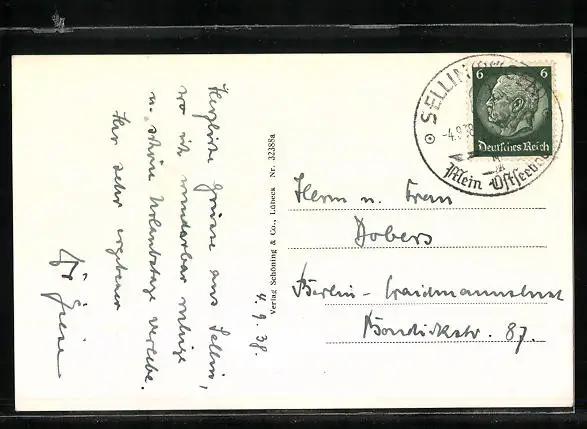 Herzliche Grüsse aus Sellin,
wo ich wunderbar ruhige
u. schöne Urlaubstage verlebe.
Ihr sehr ergebener
4.9.38.
Verlag Schöning & Co., Lübeck Nr. 32388a
SELLIN
-4.9.38
Mein Ostseebad
6 6
Deutsches Reich
Herrn u. Frau
Dobers
Berlin-Waidmannslust
Bondickstr. 87.